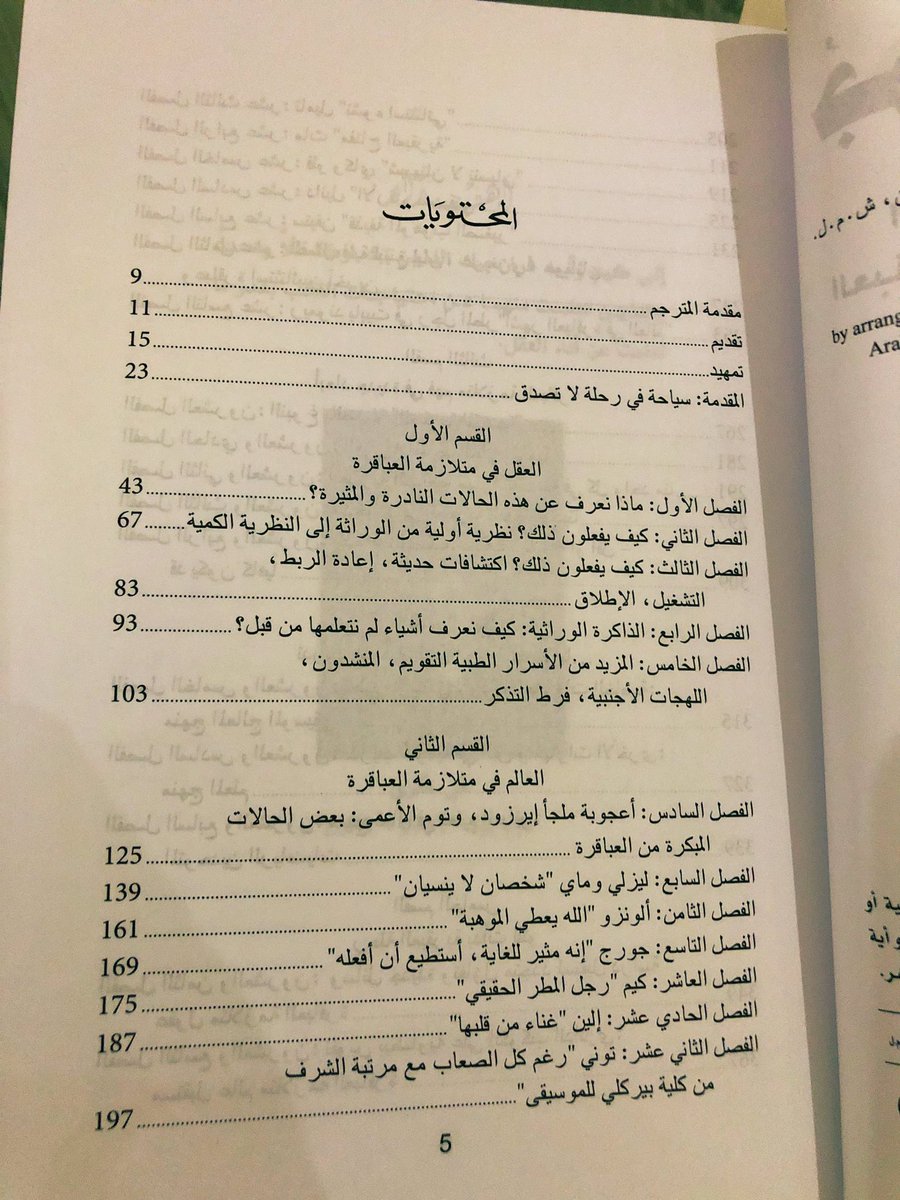 المحتويات
مقدمة المترجم ........ 9
تقديم ........ 11
تمهيد ........ 15
المقدمة: سياحة في رحلة لا تصدق ........ 23
القسم الأول
العقل في متلازمة العباقرة
الفصل الأول: ماذا نعرف عن هذه الحالات النادرة والمثيرة؟ ........ 43
الفصل الثاني: كيف يفعلون ذلك؟ نظرية أولية من الوراثة إلى النظرية الكمية ........ 67
الفصل الثالث: كيف يفعلون ذلك؟ اكتشافات حديثة، إعادة الربط،
التشغيل، الإطلاق ........ 83
الفصل الرابع: الذاكرة الوراثية: كيف نعرف أشياء لم نتعلمها من قبل؟ ........ 93
الفصل الخامس: المزيد من الأسرار الطبية التقويم، المنشدون،
اللهجات الأجنبية، فرط التذكر ........ 103
القسم الثاني
العالم في متلازمة العباقرة
الفصل السادس: أعجوبة ملجأ إيرزود، وتوم الأعمى: بعض الحالات
المبكرة من العباقرة ........ 125
الفصل السابع: ليزلي وماي "شخصان لا ينسيان" ........ 139
الفصل الثامن: ألونزو "الله يعطي الموهبة" ........ 161
الفصل التاسع: جورج "إنه مثير للغاية، أستطيع أن أفعله" ........ 169
الفصل العاشر: كيم "رجل المطر الحقيقي" ........ 175
الفصل الحادي عشر: إلين "غناء من قلبها" ........ 187
الفصل الثاني عشر: توني "رغم كل الصعاب مع مرتبة الشرف
من كلية بيركلي للموسيقى" ........ 197
5
ش.م.ل.
by arrang
Ara
ية أو
و أية